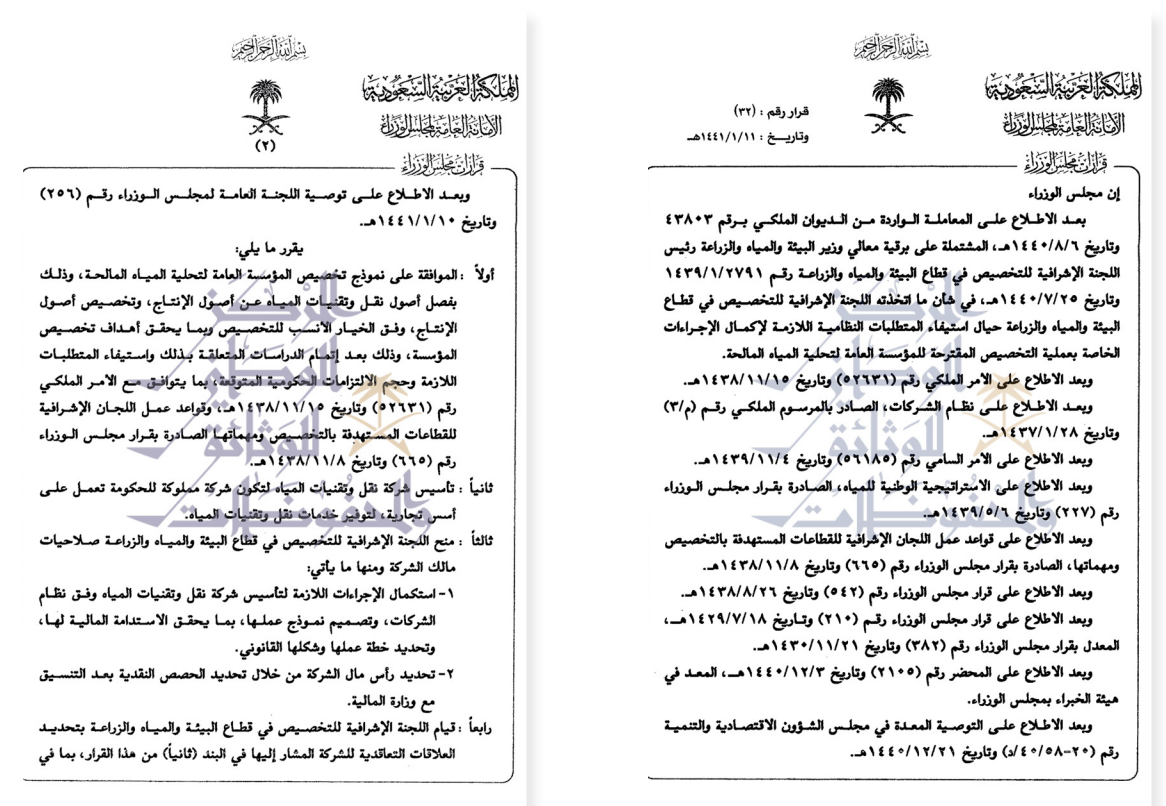 بسم الله الرحمن الرحيم
المملكة العربية السعودية
الأمانة العامة لمجلس الوزراء
قرار رقم : (٣٢)
وتاريــخ : ١٤٤١/١/١١هـ
قرارات مجلس الوزراء
إن مجلس الوزراء
بعـد الاطـلاع علـى المعاملـة الـواردة مـن الـديوان الملكـي بـرقم ٤٣٨٠٣
وتاريخ ١٤٤٠/٨/٦هـ، المشتملة على برقية معالي وزير البيئة والمياه والزراعة رئيس
اللجنة الإشرافية للتخصيص في قطاع البيئة والمياه والزراعة رقـم ١٤٣٩/١/٢٧٩١
وتاريخ ١٤٤٠/٧/٢٥هـ، في شأن ما اتخذته اللجنة الإشرافية للتخصيص في قطـاع
البيئة والمياه والزراعة حيال استيفاء المتطلبات النظامية اللازمة لإكمال الإجراءات
الخاصة بعملية التخصيص المقترحة للمؤسسة العامة لتحلية المياه المالحة.
وبعد الاطلاع على الأمر الملكي رقم (٥٢٦٣١) وتاريخ ١٤٣٨/١١/١٥هـ.
وبعـد الاطلاع علـى نظـام الشـركات، الصـادر بالمرسوم الملكـي رقـم (م/٣)
وتاريخ ١٤٣٧/١/٢٨هـ.
وبعد الاطلاع على الأمر السامي رقم (٥٦١٨٥) وتاريخ ١٤٣٩/١١/٤هـ.
وبعد الاطلاع على الاستراتيجية الوطنية للمياه، الصادرة بقرار مجلس الوزراء
رقم (٢٢٧) وتاريخ ١٤٣٩/٥/٦هـ.
وبعد الاطلاع على قواعد عمل اللجان الإشرافية للقطاعات المستهدفة بالتخصيص
ومهماتها، الصادرة بقرار مجلس الوزراء رقم (٦٦٥) وتاريخ ١٤٣٨/١١/٨هـ.
وبعد الاطلاع على قرار مجلس الوزراء رقم (٥٤٢) وتاريخ ١٤٣٨/٨/٢٦هـ.
وبعد الاطلاع على قرار مجلس الوزراء رقـم (٢١٠) وتـاريخ ١٤٢٩/٧/١٨هـ،
المعدل بقرار مجلس الوزراء رقم (٣٨٢) وتاريخ ١٤٣٠/١١/٢١هـ.
وبعد الاطلاع على المحضر رقم (٢١٠٥) وتاريخ ١٤٤٠/١٢/٣هـ، المعـد في
هيئة الخبراء بمجلس الوزراء.
وبعد الاطلاع علـى التوصية المعدة في مجلس الشؤون الاقتصادية والتنمية
رقم (٢٠-٤٠/٥٨/د) وتاريخ ١٤٤٠/١٢/٢١هـ.
بسم الله الرحمن الرحيم
المملكة العربية السعودية
الأمانة العامة لمجلس الوزراء
(٢)
قرارات مجلس الوزراء
وبعـد الاطلاع علـى توصية اللجنة العامـة لمجلـس الـوزراء رقـم (٢٥٦)
وتاريخ ١٤٤١/١/١٠هـ.
يقرر ما يلي:
أولاً : الموافقة على نموذج تخصيص المؤسسة العامة لتحلية الميـاه المالحـة، وذلـك
بفصل أصول نقـل وتقنيـات الميـاه عـن أصـول الإنتـاج، وتخصـيص أصـول
الإنتـاج، وفـق الخيـار الأنسـب للتخصـيص وبمـا يحقـق أهـداف تخصـيص
المؤسسة، وذلك بعـد إتمـام الدراسـات المتعلقـة بـذلك واستيفاء المتطلبات
اللازمة وحجم الالتزامات الحكومية المتوقعة، بما يتوافـق مـع الأمـر الملكـي
رقم (٥٢٦٣١) وتاريخ ١٤٣٨/١١/١٥هـ، وقواعد عمـل اللجـان الإشرافية
للقطاعات المستهدفة بالتخصيص ومهماتها الصادرة بقرار مجلس الوزراء
رقم (٦٦٥) وتاريخ ١٤٣٨/١١/٨هـ.
ثانياً : تأسيس شركة نقل وتقنيات المياه لتكون شركة مملوكة للحكومة تعمـل علـى
أسس تجارية، لتوفير خدمات نقل وتقنيات المياه.
ثالثاً : منح اللجنة الإشرافية للتخصيص في قطاع البيئة والمياه والزراعة صلاحيات
مالك الشركة ومنها ما يأتي:
١- استكمال الإجراءات اللازمة لتأسيس شركة نقل وتقنيات المياه وفق نظـام
الشركات، وتصـميم نمـوذج عملـها، بمـا يحقـق الاسـتدامة الماليـة لهـا،
وتحديد خطة عملها وشكلها القانوني.
٢- تحديد رأس مال الشركة من خلال تحديد الحصص النقدية بعد التنسيق
مع وزارة المالية.
رابعاً : قيام اللجنة الإشرافية للتخصيص في قطاع البيئة والمياه والزراعـة بتحديـد
العلاقات التعاقدية للشركة المشار إليها في البند (ثانياً) من هذا القرار، بما في
المركز
الوطني
للوثائق
والمحفوظات
المركز
الوطني
للوثائق
والمحفوظات